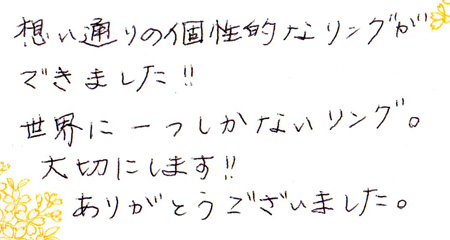 想い通りの個性的なリングが
できました!!
世界に一つしかないリング。
大切にします!!
ありがとうございました。